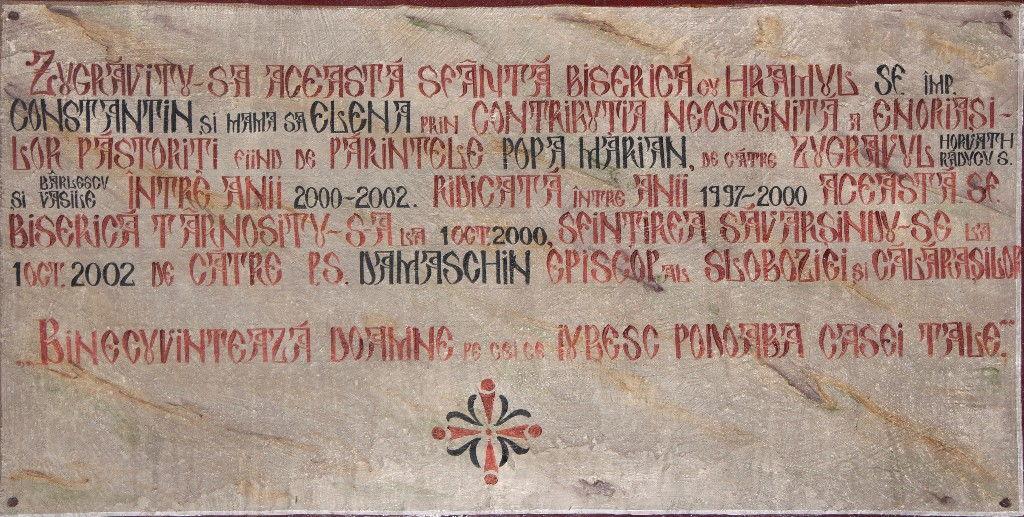 ZUGRĂVITU-SA ACEASTĂ SFÂNTĂ BISERICĂ CU HRAMUL SF. IMP.
CONSTANTIN ȘI MAMA SA ELENA PRIN CONTRIBUTIA NEOSTENITA A ENORIASI-
LOR PĂSTORIȚI FIIND DE PĂRINTELE POPA MARIAN, DE CĂTRE ZUGRAVUL HORVATH RĂDUCU S.
SI BÂRLESCU VASILE ÎNTRE ANII 2000-2002. RIDICATĂ ÎNTRE ANII 1997-2000 ACEASTĂ SF.
BISERICĂ TARNOSITU-S-A LA 1 OCT. 2000, SFINTIREA SAVARSINDU-SE LA
1 OCT. 2002 DE CĂTRE P.S. DAMASCHIN EPISCOP AL SLOBOZIEI ȘI CĂLĂRAȘILOR
„BINECUVINTEAZĂ DOAMNE PE CEI CE IUBESC PODOABA CASEI TALE."